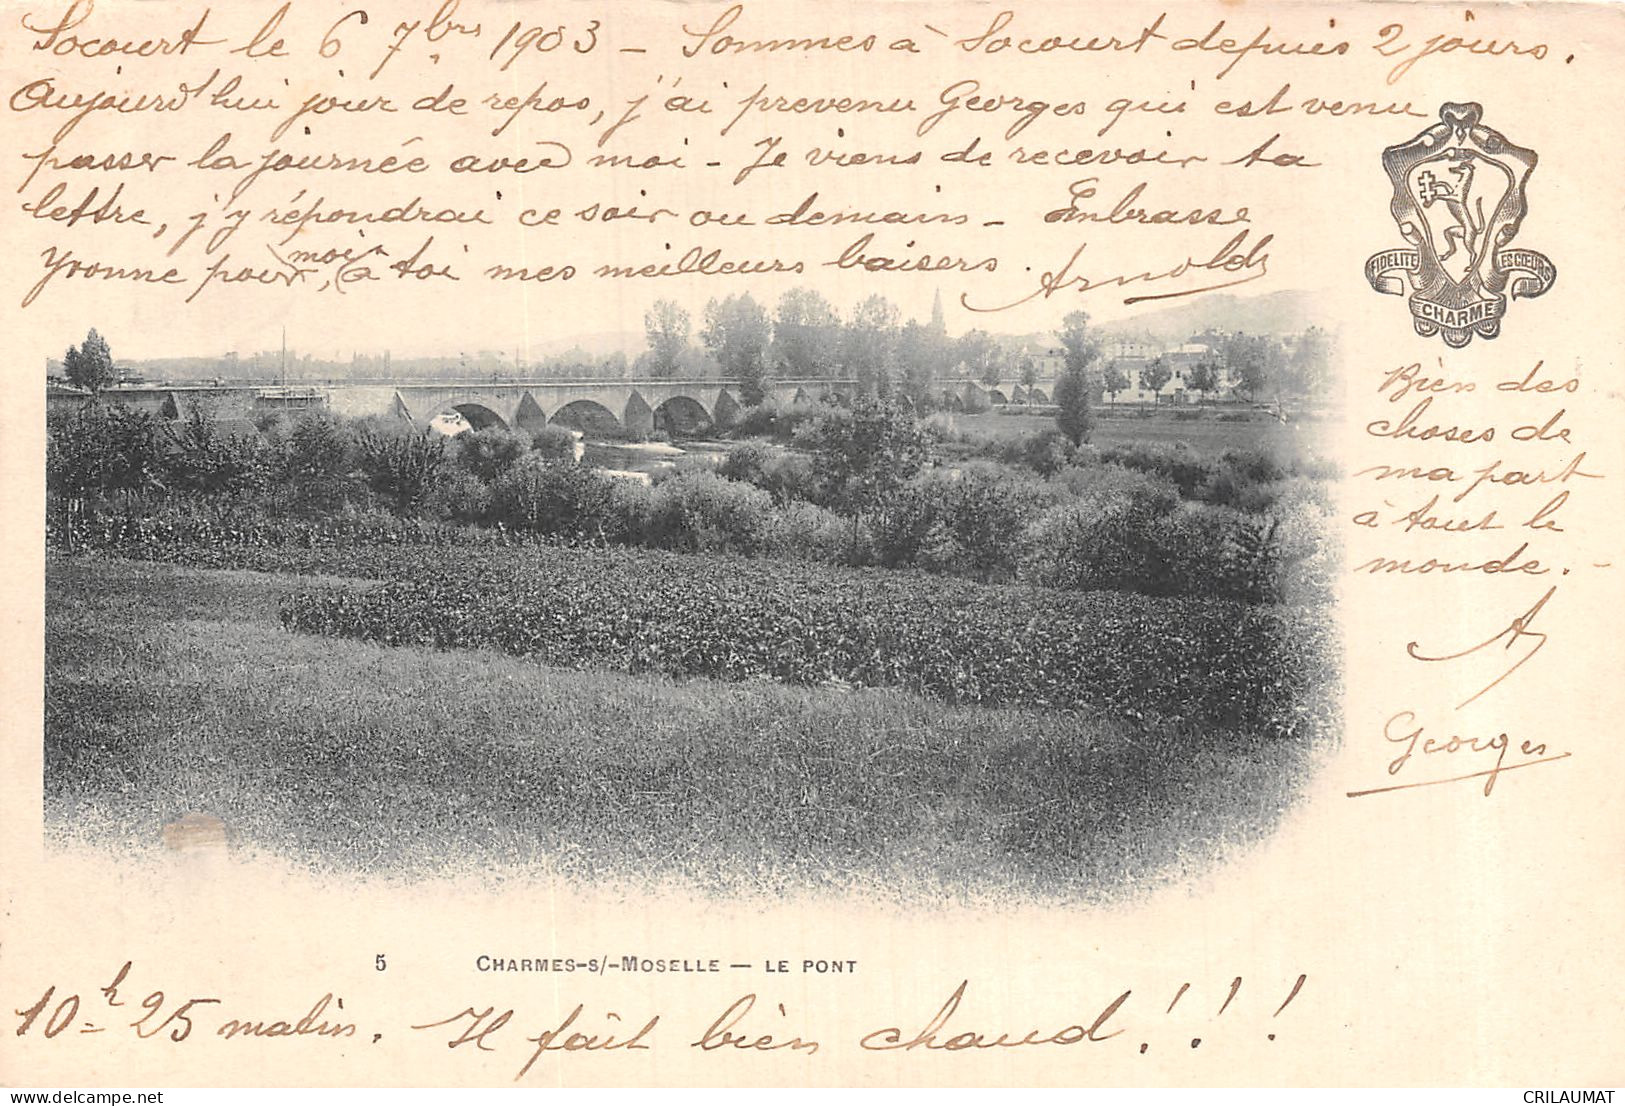 Socourt le 6 7bre 1903 - Sommes à Socourt depuis 2 jours.
Aujourd'hui jour de repos, j'ai prevenu Georges qui est venu
passer la journée avec moi - Je viens de recevoir ta
lettre, j'y répondrai ce soir ou demain - Embrasse
Yvonne pour moi, à toi mes meilleurs baisers.
Arnold
FIDELITE
LES CŒURS
CHARME
Bien des
choses de
ma part
à tout le
monde. -
A
Georges
5 CHARMES-S/-MOSELLE — LE PONT
10h 25 matin. Il fait bien chaud!!!
CRILAUMAT